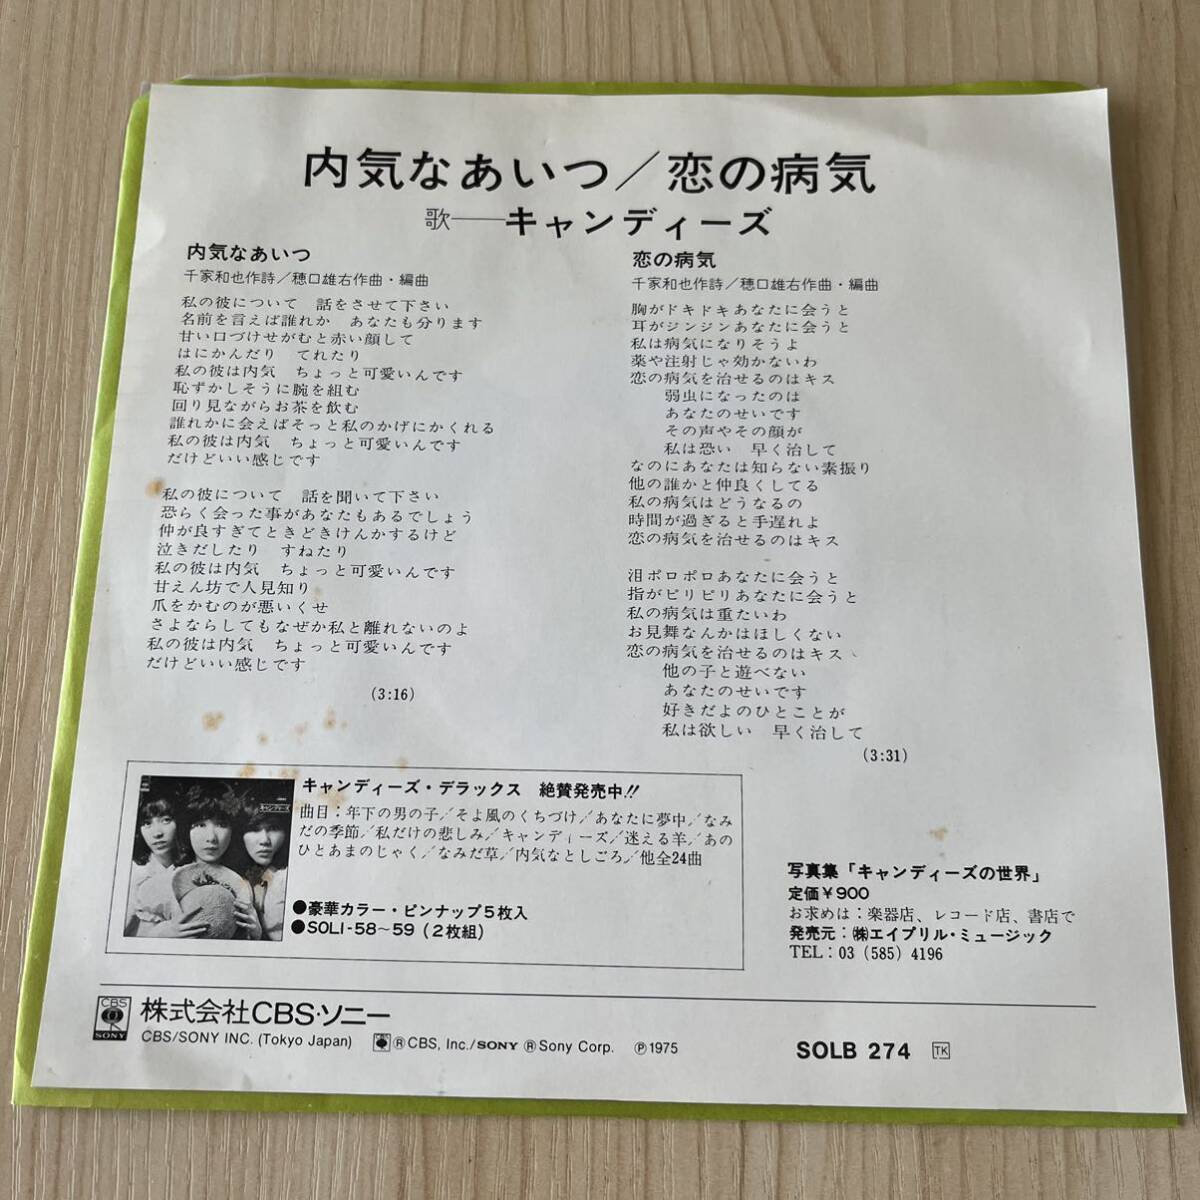 内気なあいつ／恋の病気
歌──キャンディーズ
内気なあいつ
千家和也作詩／穂口雄右作曲・編曲
私の彼について　話をさせて下さい
名前を言えば誰れか　あなたも分ります
甘い口づけせがむと赤い顔して
はにかんだり　てれたり
私の彼は内気　ちょっと可愛いんです
恥ずかしそうに腕を組む
回り見ながらお茶を飲む
誰れかに会えばそっと私のかげにかくれる
私の彼は内気　ちょっと可愛いんです
だけどいい感じです
私の彼について　話を聞いて下さい
恐らく会った事があなたもあるでしょう
仲が良すぎてときどきけんかするけど
泣きだしたり　すねたり
私の彼は内気　ちょっと可愛いんです
甘えん坊で人見知り
爪をかむのが悪いくせ
さよならしてもなぜか私と離れないのよ
私の彼は内気　ちょっと可愛いんです
だけどいい感じです
(3:16)
恋の病気
千家和也作詩／穂口雄右作曲・編曲
胸がドキドキあなたに会うと
耳がジンジンあなたに会うと
私は病気になりそうよ
薬や注射じゃ効かないわ
恋の病気を治せるのはキス
弱虫になったのは
あなたのせいです
その声やその顔が
私は恐い　早く治して
なのにあなたは知らない素振り
他の誰かと仲良くしてる
私の病気はどうなるの
時間が過ぎると手遅れよ
恋の病気を治せるのはキス
泪ポロポロあなたに会うと
指がピリピリあなたに会うと
私の病気は重たいわ
お見舞なんかはほしくない
恋の病気を治せるのはキス
他の子と遊べない
あなたのせいです
好きだよのひとことが
私は欲しい　早く治して
(3:31)
キャンディーズ・デラックス　絶賛発売中!!
曲目：年下の男の子／そよ風のくちづけ／あなたに夢中／なみ
だの季節／私だけの悲しみ／キャンディーズ／迷える羊／あの
ひとあまのじゃく／なみだ草／内気なとしごろ／他全24曲
●豪華カラー・ピンナップ5枚入
●SOLI-58〜59（2枚組）
キャンディーズ
写真集「キャンディーズの世界」
定価￥900
お求めは：楽器店、レコード店、書店で
発売元：㈱エイプリル・ミュージック
TEL：03（585）4196
CBS SONY 株式会社CBS・ソニー
CBS/SONY INC. (Tokyo Japan) ⓇCBS, Inc./SONY ⓇSony Corp. Ⓟ1975
SOLB 274 TK